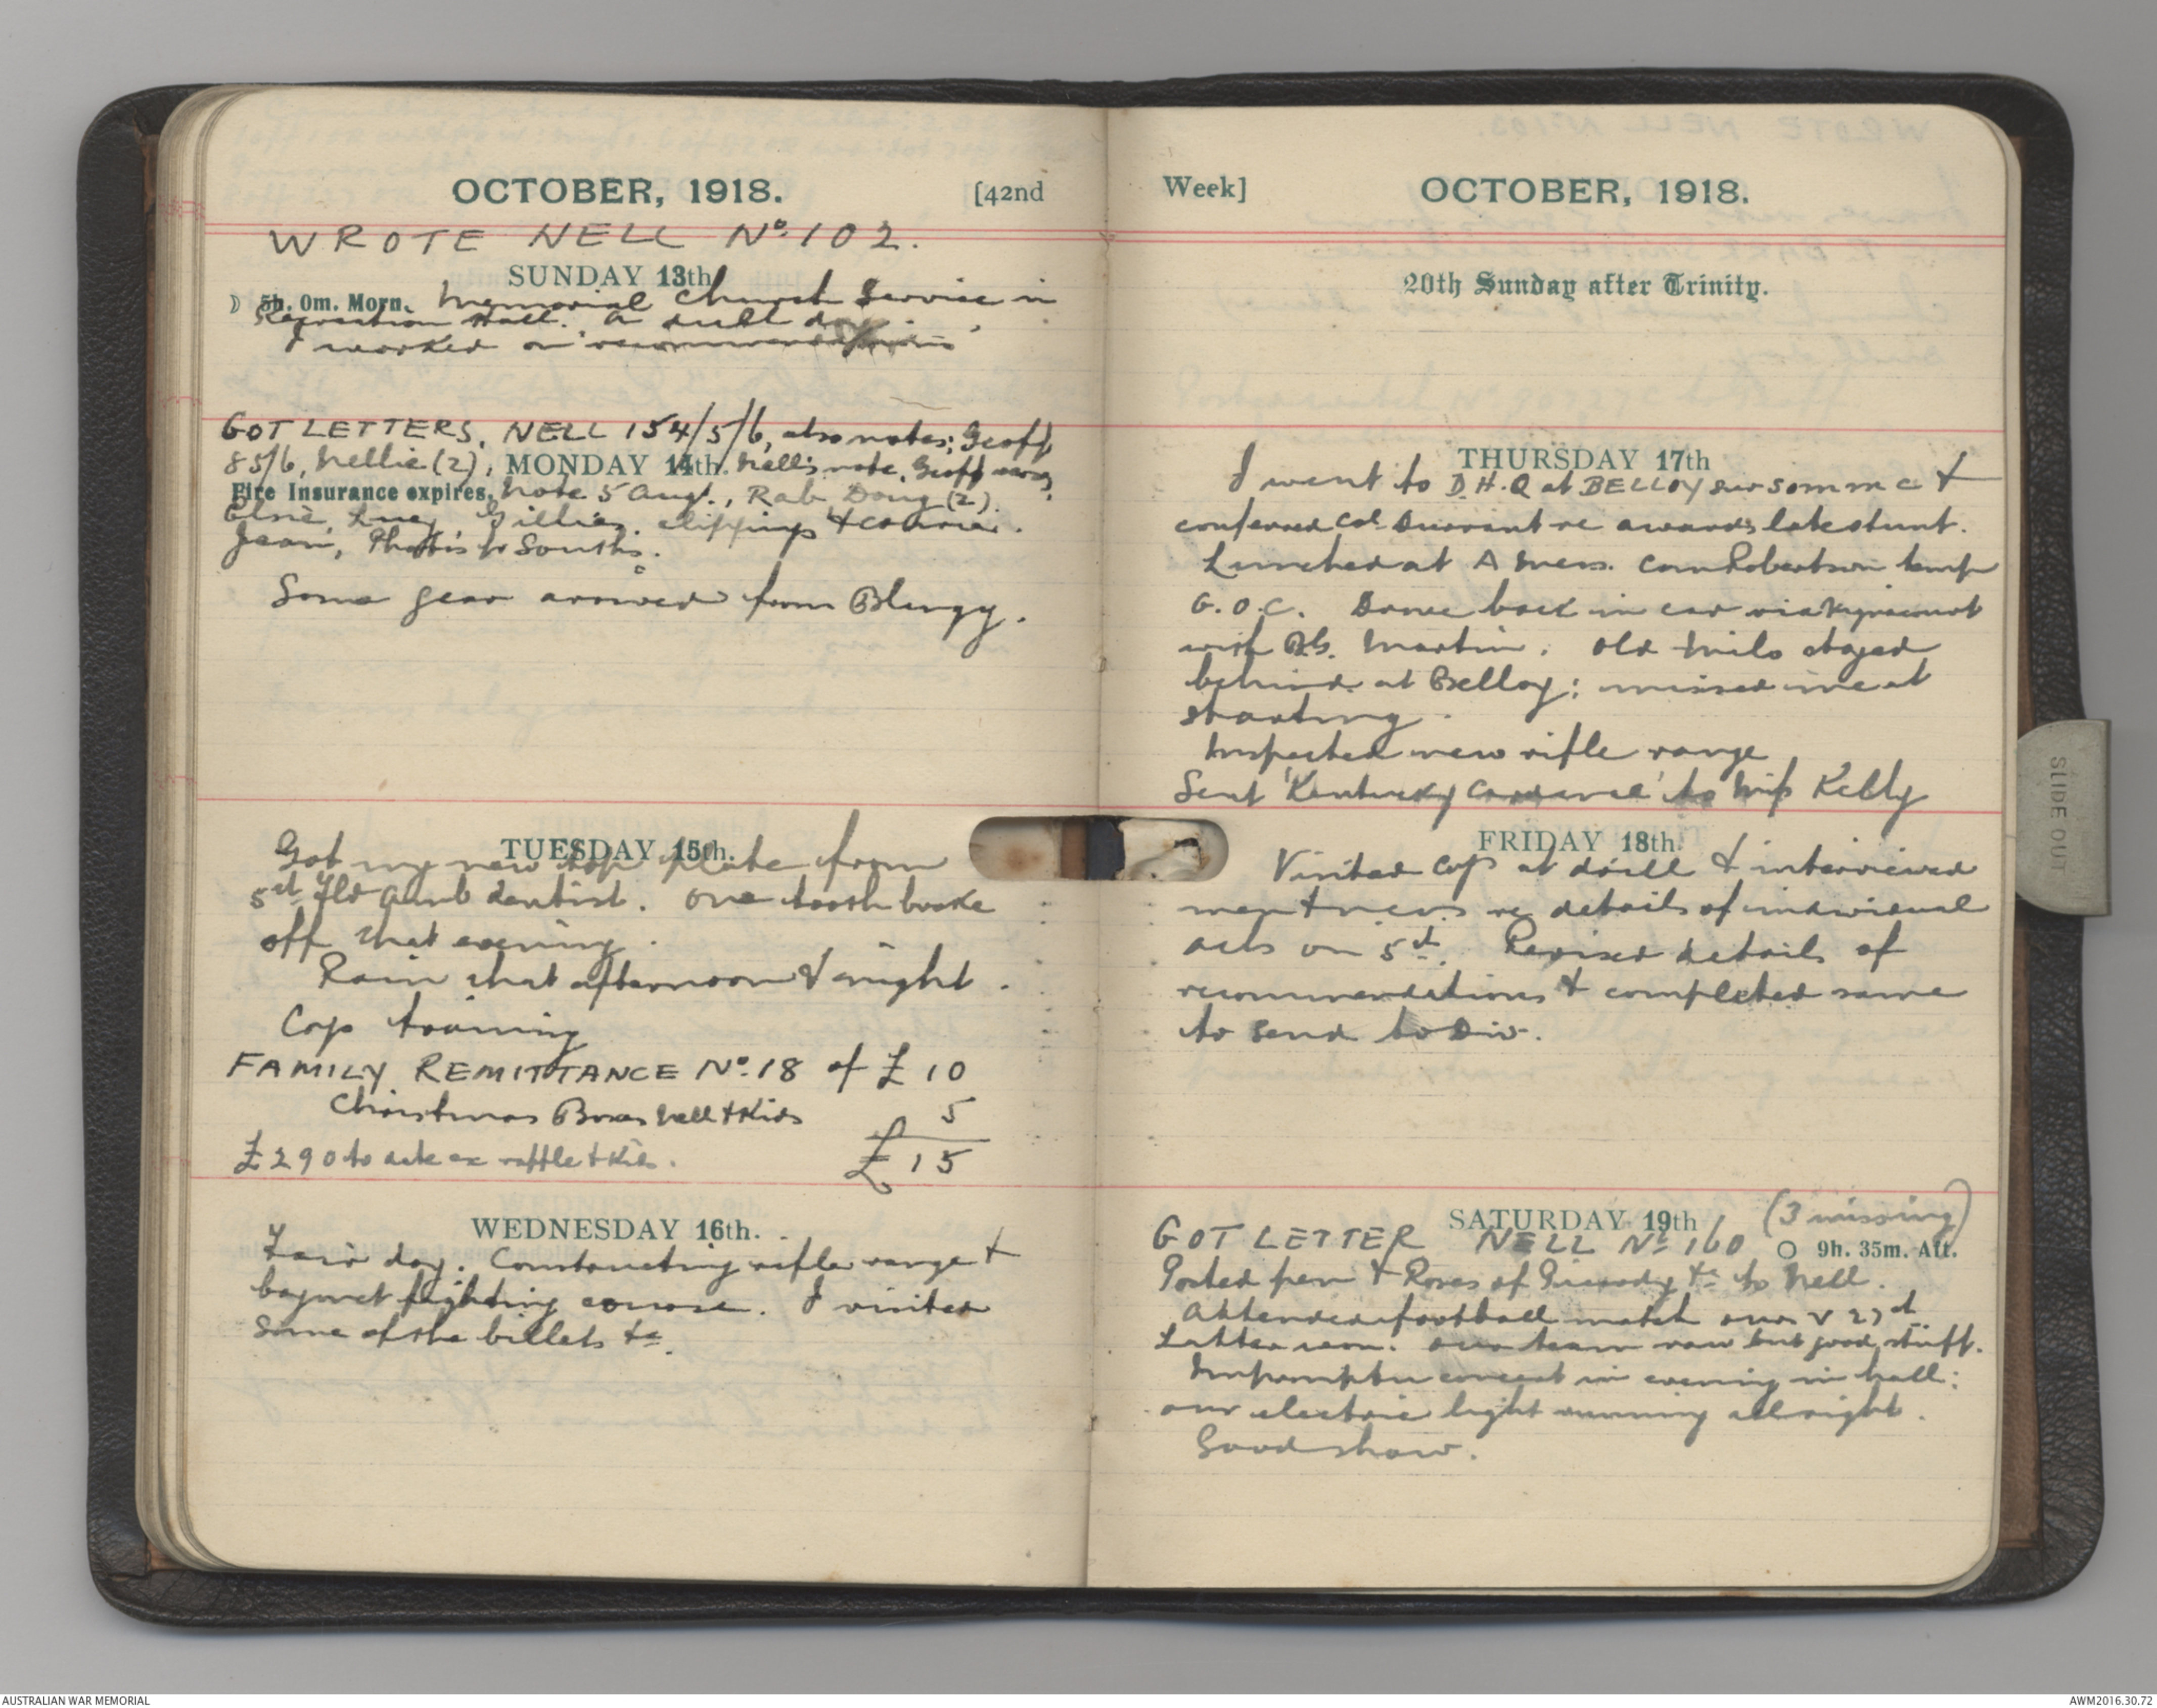 OCTOBER, 1918. [42nd
WROTE NELL No. 102.
SUNDAY 13th
☽ 5h. 0m. Morn. Memorial Church Service in
Recreation Hall. A dull day.
I worked on recommendations
GOT LETTERS, NELL 154/5/6, also notes; Geoff
85/6, Nellie (2), Nell's note, Geoff
MONDAY 14th.
Fire Insurance expires. note 5 Aug., Rab, Doug (2).
Elsie, Lucy, Gillies, clippings &
Jean, Photos fr Souths.
Some gear arrived from Blingy.
TUESDAY 15th.
Got my new top plate from
5th Fld Amb dentist. One tooth broke
off that evening.
Rain that afternoon & night.
Coys training
FAMILY REMITTANCE No. 18 of £10
Christmas Boxes Nell & Kids 5
£290 to date ex raffle & Kids. £15
WEDNESDAY 16th.
Fair day. Constructing rifle range &
bayonet fighting course. I visited
some of the billets &c.
Week] OCTOBER, 1918.
20th Sunday after Trinity.
THURSDAY 17th
I went to D.H.Q at BELLOY sur somme &
conferred Col Durrant re awards late stunt.
Lunched at A Mess. Robertson temp
G.O.C. Drove back in car via
with Martin. Old Milo stayed
behind at Belloy; missed me at
starting.
Inspected new rifle range
Sent 'Kentucky to Miss Kelly
FRIDAY 18th.
Visited Coys at drill & interviewed
men & re details of individual
acts on 5th. Revised details of
recommendations & completed same
to send to Div.
SATURDAY 19th (3 missing)
GOT LETTER NELL No. 160 ○ 9h. 35m. Aft.
Posted pen & Roses of Picardy &c to Nell.
Attended football match ours v 27th.
Latter won. Our team raw but good stuff.
Impromptu concert in evening in hall:
our electric light running allright.
Good show.
SLIDE OUT
AUSTRALIAN WAR MEMORIAL
AWM2016.30.72